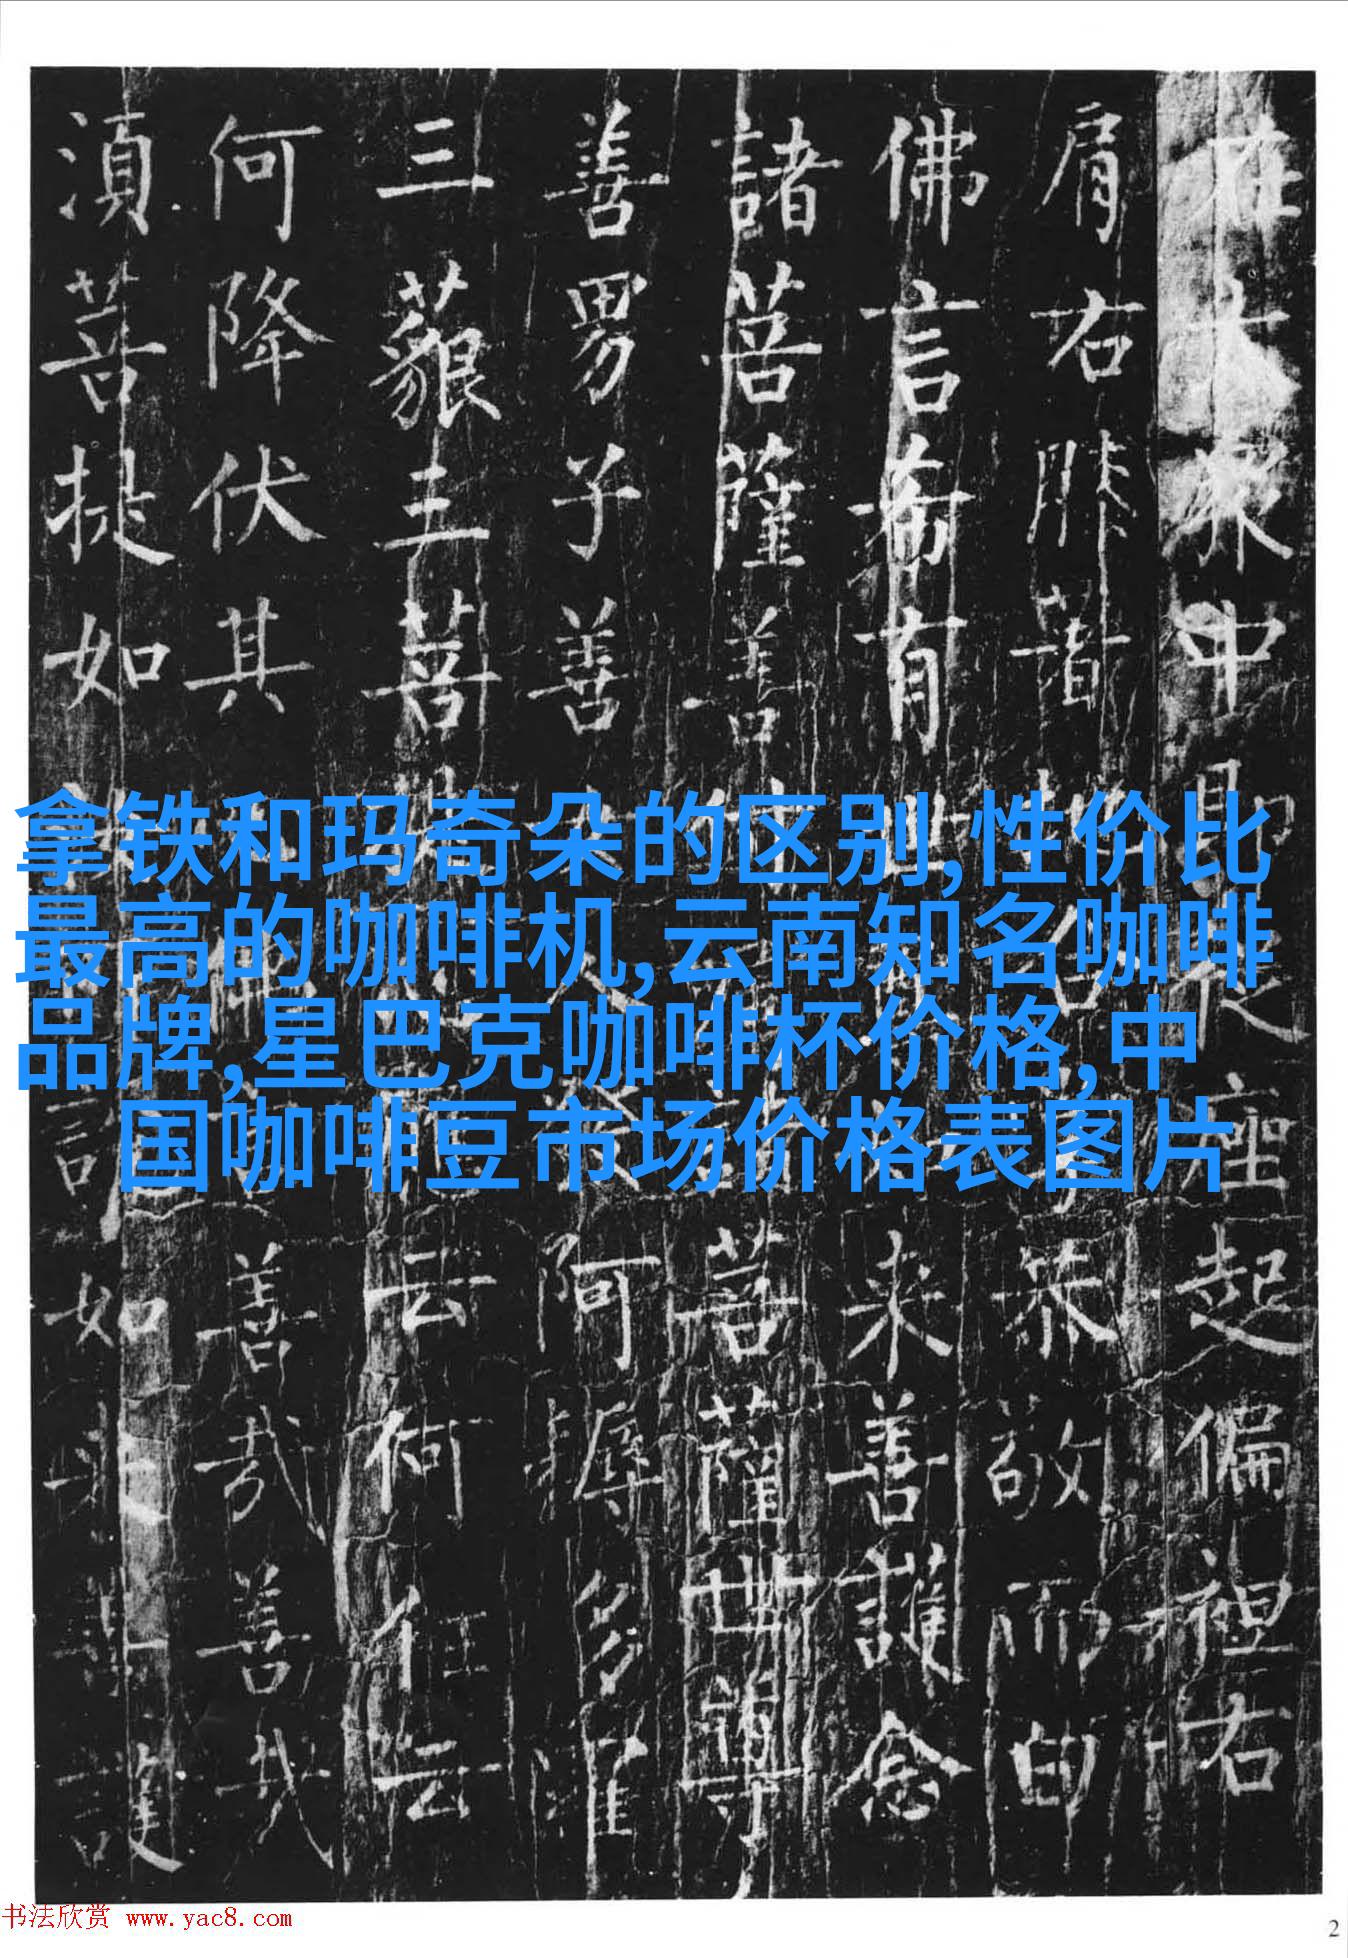 在大衆中即從座起偏袒右
肩右膝著合恭敬而白
佛言希有来善護念
諸菩薩善菩薩世尊
善男子善阿耨多羅
三藐三菩云何住云
何降伏其佛善哉善哉
湏菩提如説如来善護
拿铁和玛奇朵的区别,性价比
最高的咖啡机,云南知名咖啡
品牌,星巴克咖啡杯价格,中
国咖啡豆市场价格表图片
书法欣赏 www.yac8.com
2